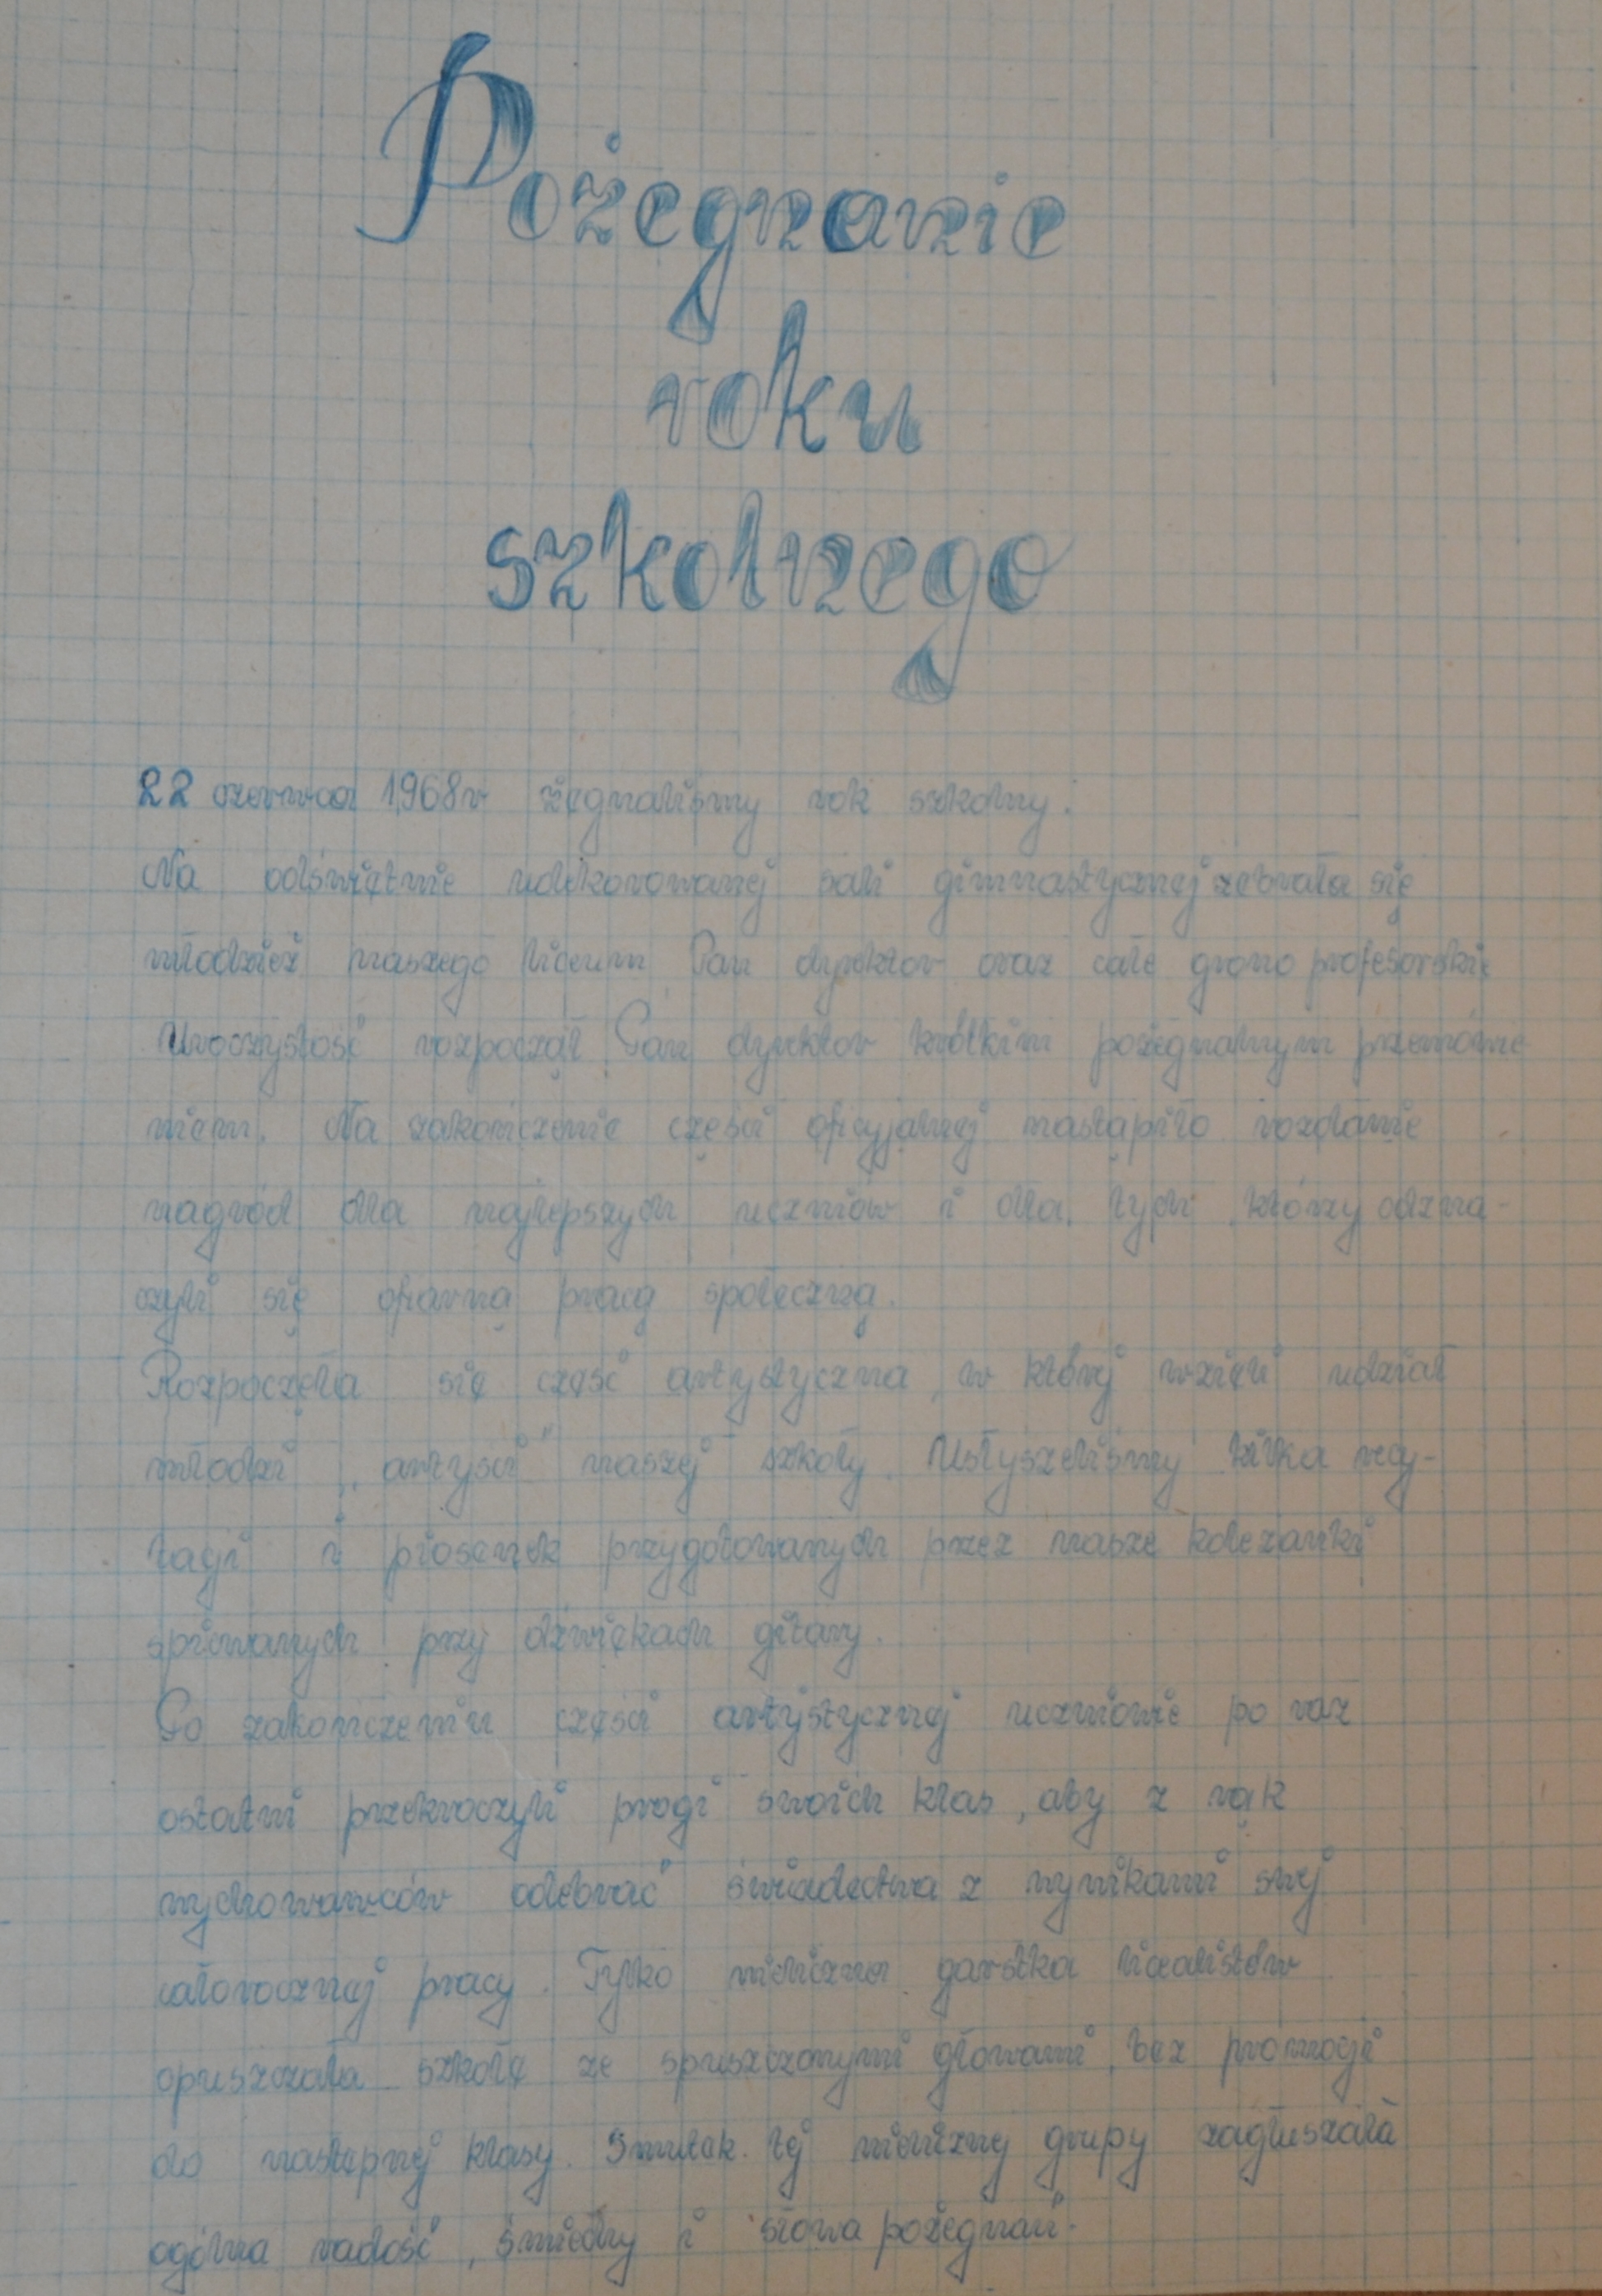 Pożegnanie
roku
szkolnego
22 czerwca 1968r żegnaliśmy rok szkolny.
Na odświętnie udekorowanej sali gimnastycznej zebrała się
młodzież naszego liceum Pan dyrektor oraz całe grono profesorskie
Uroczystość rozpoczął Pan dyrektor krótkim pożegnalnym przemówie
niem. Na zakończenie części oficyjalnej nastąpiło rozdanie
nagród dla najlepszych uczniów i dla tych którzy odzna-
czyli się ofiarną pracą społeczną.
Rozpoczęła się część artystyczna, w której wzięli udział
młodzi „artyści" naszej szkoły. Usłyszeliśmy kilka recy-
tacji i piosenek przygotowanych przez nasze koleżanki
śpiewanych przy dźwiękach gitary.
Po zakończeniu części artystycznej uczniowie po raz
ostatni przekroczyli progi swoich klas, aby z rąk
wychowawców odebrać świadectwa z wynikami swej
całorocznej pracy. Tylko nieliczna garstka licealistów
opuszczała szkołę ze spuszczonymi głowami, bez promocji
do następnej klasy. Smutek tej nielicznej grupy zagłuszała
ogólna radość, śmiechy i słowa pożegnań.